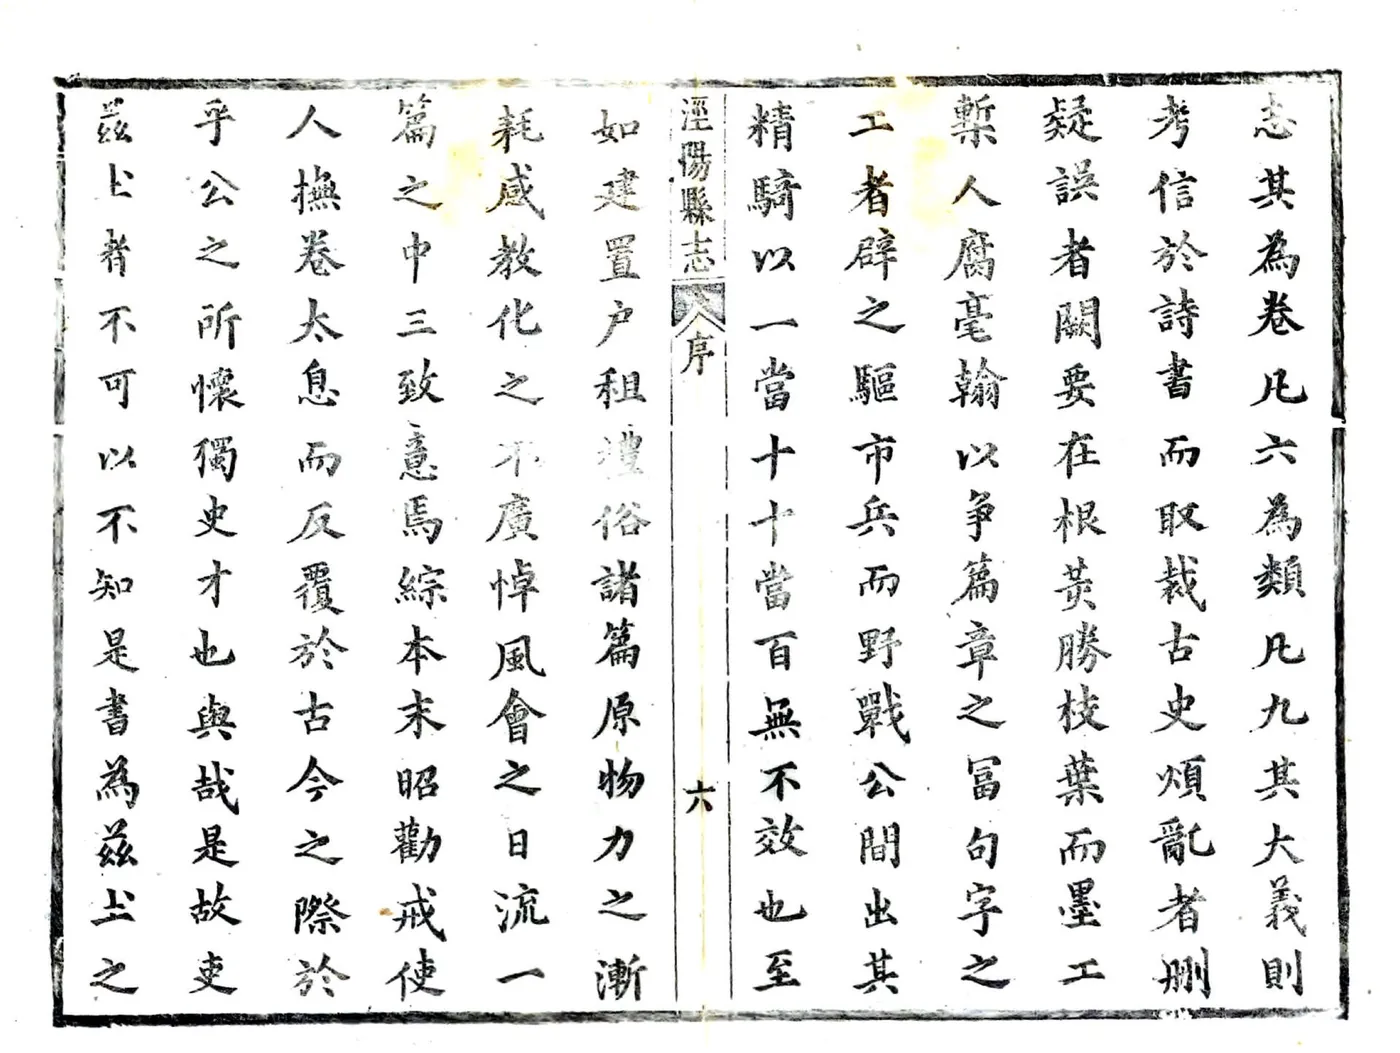 志其為卷凡六為類凡九其大義則
考信於詩書而取裁古史煩亂者刪
疑誤者闕要在根荄勝枝葉而墨工
槧人腐毫翰以爭篇章之冨句字之
工者辟之驅市兵而野戰公間出其
精騎以一當十十當百無不效也至
涇陽縣志 序 六
如建置户租禮俗諸篇原物力之漸
耗感教化之不廣悼風會之日流一
篇之中三致意焉綜本末昭勸戒使
人撫卷太息而反覆於古今之際於
乎公之所懷獨史才也與哉是故吏
茲上者不可以不知是書為茲上之